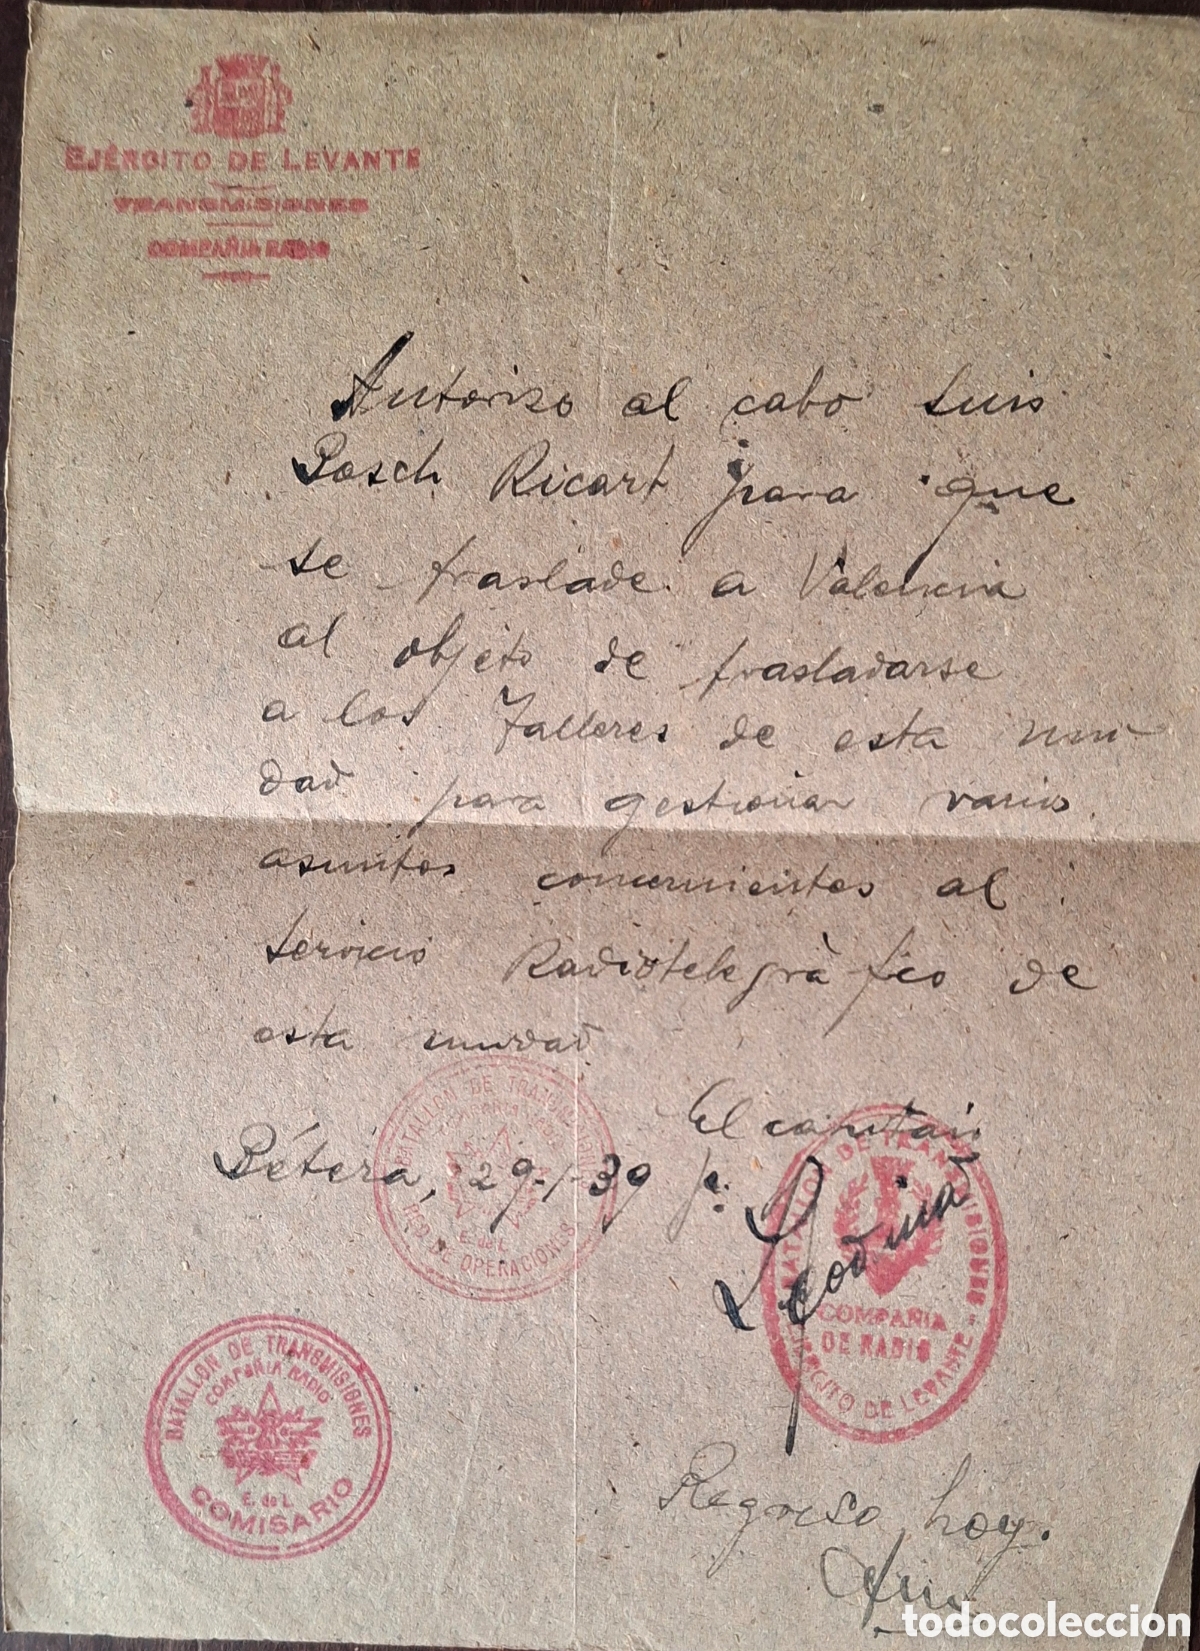 EJÉRCITO DE LEVANTE
TRANSMISIONES
COMPAÑIA RADIO
Autorizo al cabo Luis
Bosch Ricart para que
se traslade a Valencia
al objeto de trasladarse
a los Talleres de esta uni
dad para gestionar varios
asuntos concernientes al
servicio Radiotelegràfico de
esta unidad
El capitán
Bétera, 29-1-39
BATALLON DE TRANSMISIONES
E. de L.
RED DE OPERACIONES
BATALLON DE TRANSMISIONES
COMPAÑIA
DE RADIO
EJERCITO DE LEVANTE
BATALLON DE TRANSMISIONES
COMPAÑIA RADIO
E. de L.
COMISARIO
Regreso hoy.
todocoleccion